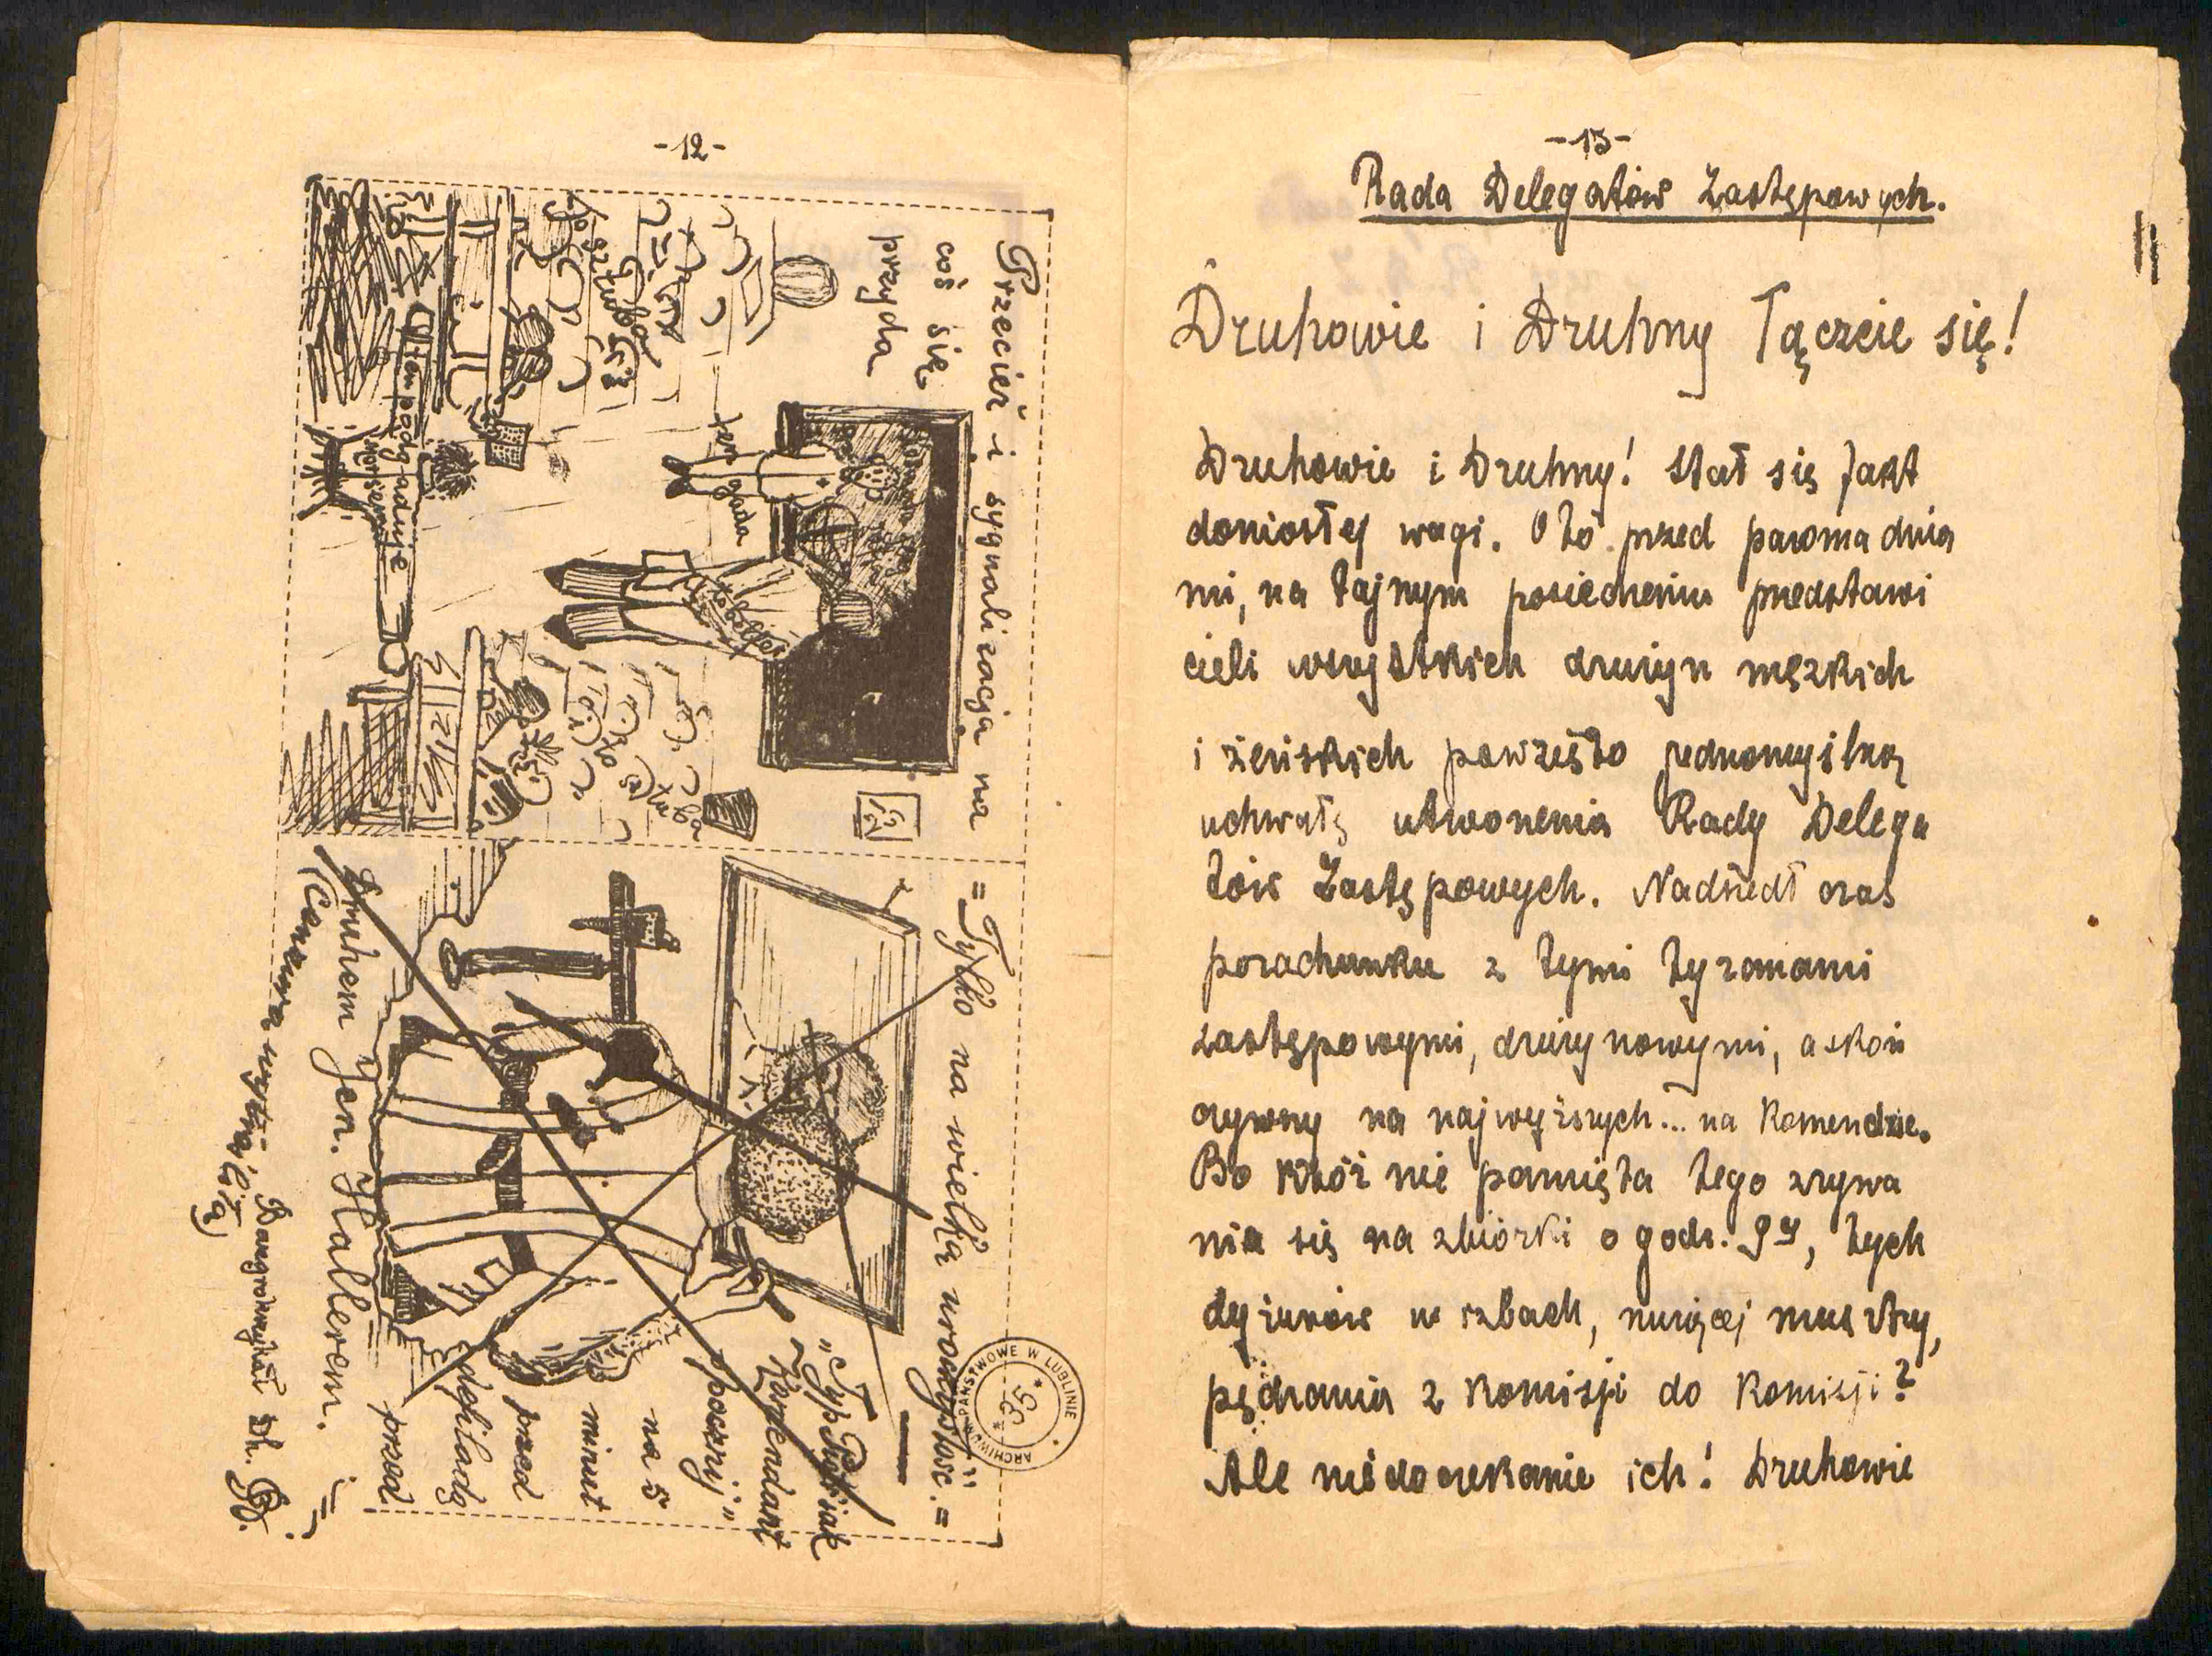 -12-
Przecież i sygnalizacja na
coś się
przyda
ten gada
to sztuba
to są
sztuba
ten podgaduje
= Tylko na wielką uroczystość. =
"Typ
Komendant
poczuj"
na 5
minut
przed
defiladą
przed
Druhem Gen. Hallerem.
(Cenzura
Dh. B.
ARCHIWUM PAŃSTWOWE W LUBLINIE
-13-
Rada Delegatów Zastępowych.
Druhowie i Druhny Łączcie się!
Druhowie i Druhny! Stał się fakt
doniosłej wagi. Oto przed paroma dnia
mi, na tajnym posiedzeniu przedstawi
cieli wszystkich drużyn męzkich
i żeńskich powzięto jednomyślną
uchwałę utworzenia Rady Delega
tów Zastępowych. Nadszedł czas
porachunku z tymi tyranami
zastępowymi, drużynowymi, a skoń
czywszy na najwyższych... na Komendzie.
Bo któż nie pamięta tego zrywa
nia się na zbiórki o godz. 9ej, tych
dyżurów w izbach, muszącej musztry,
pędzania z Komisji do Komisji?
Ale niedoczekanie ich! Druhowie